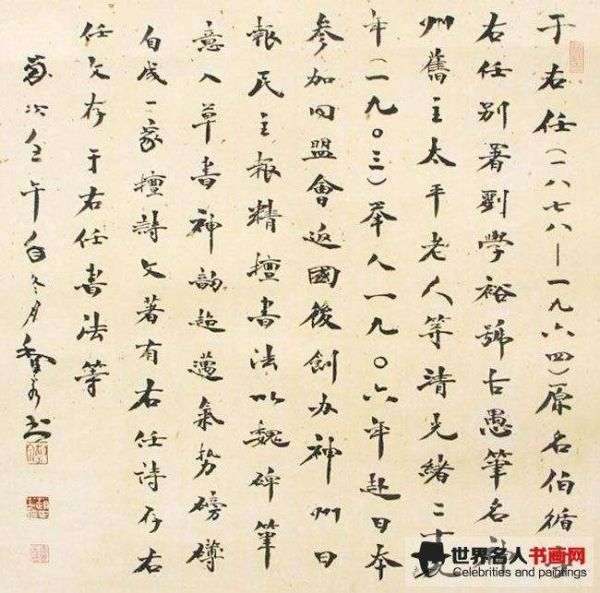 于右任(一八七八—一九六四)原名伯循字
右任别署劉學裕號古愚筆名神
州舊主太平老人等清光緒二十九
年(一九〇三)举人一九〇六年赴日本
参加同盟會返國後創办神州日
報民主報精擅書法以魏碑筆
意入草書神韵超邁氣势磅礴
自成一家擅詩文著有右任诗存右
任文存于右任書法等
歲次壬午年冬月
世界名人书画网
Celebrities and paintings